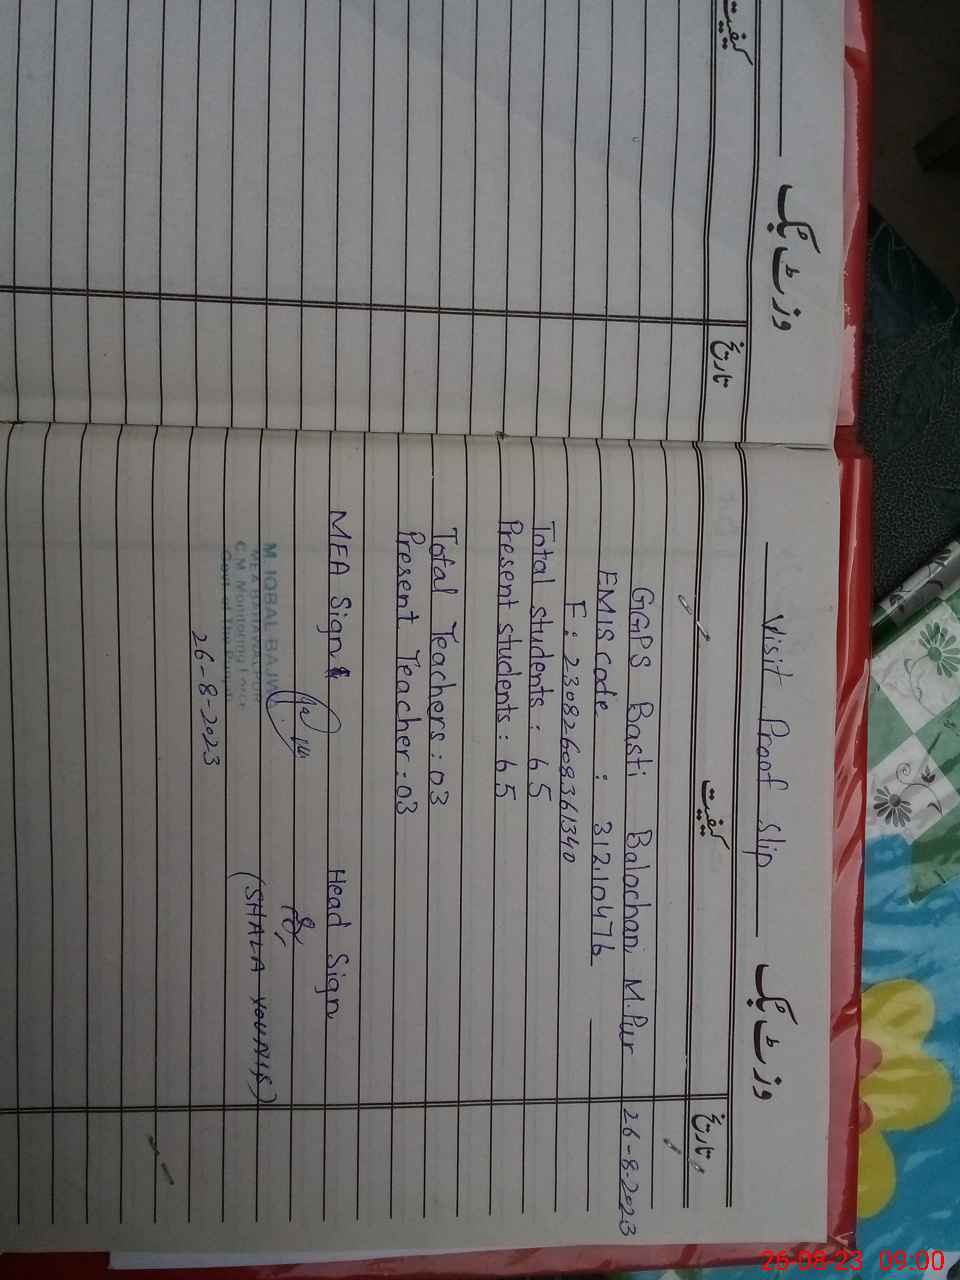 کیفیت
وزٹ بک
تاریخ
Visit Proof Slip
وزٹ بک
کیفیت
تاریخ
GGPS Basti Balochani M.Pur 26-8-2023
EMIS code : 31210476
F: 23082608361340
Total students : 65
Present students : 65
Total Teachers : 03
Present Teacher : 03
MEA Sign
Head Sign
M IQBAL BAJWA
MEA BAHAWALPUR
C.M. Monitoring Force
Govt. of The Punjab
(SHALA YOUNIS)
26-8-2023
26-08-23 09:00